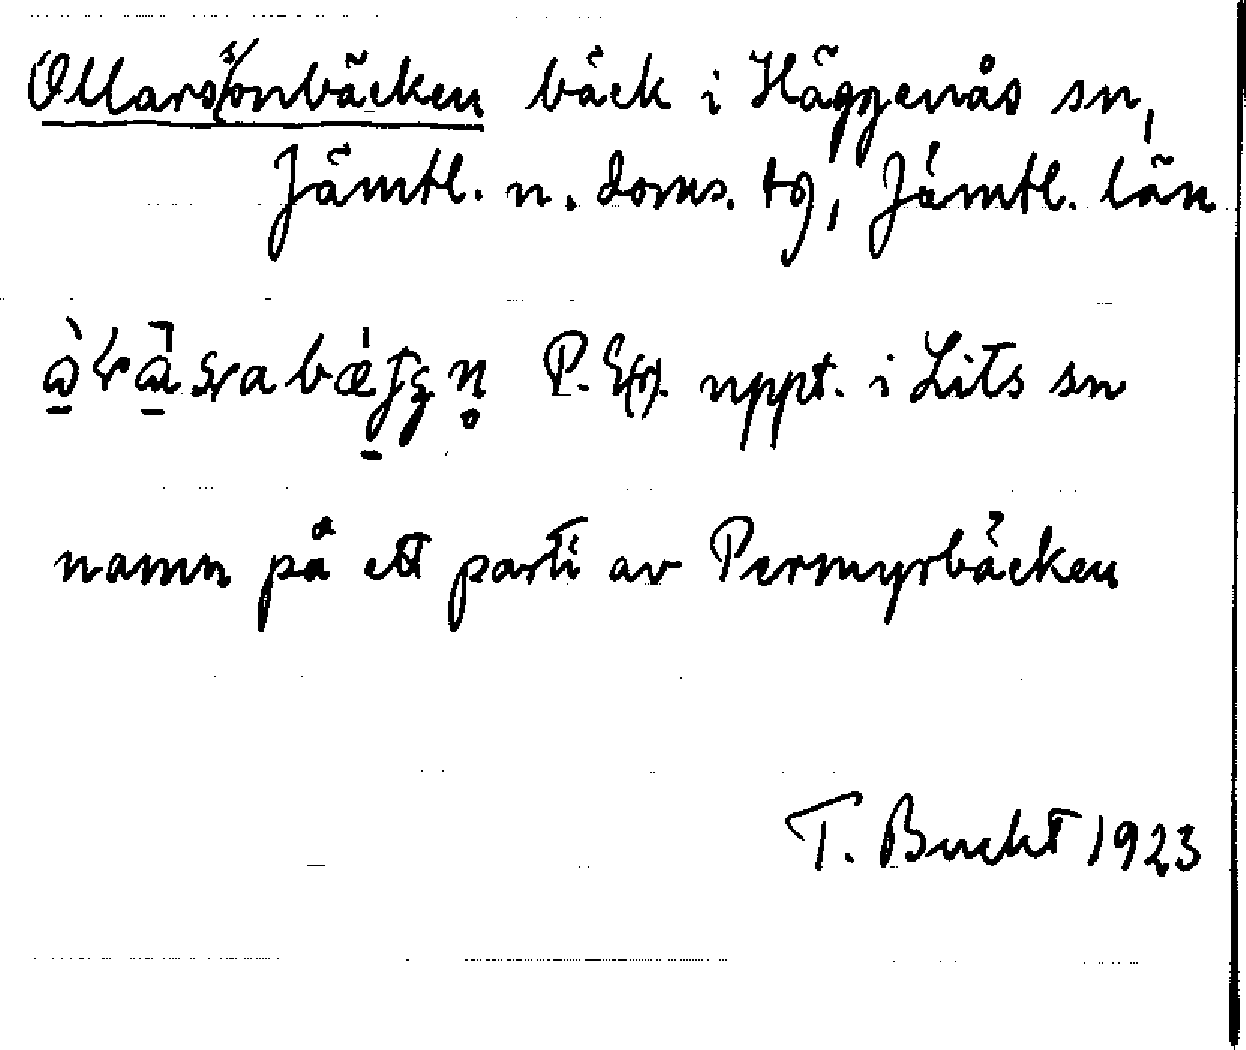 Ollarssonbäcken bäck i Häggenås sn,
Jämtl. n. doms. tg, Jämtl. län
P. uppt. i Lits sn
namn på ett parti av Permyrbäcken
T. Bucht 1923